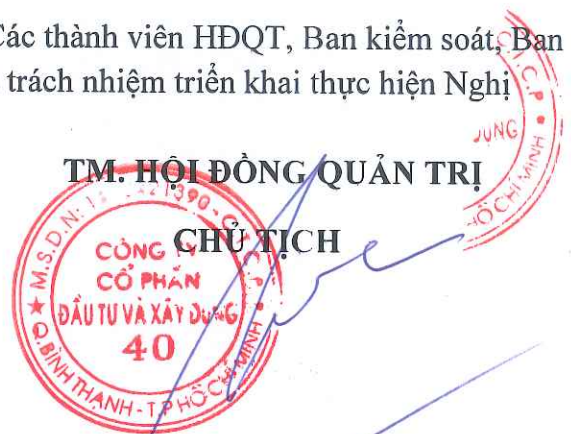 Các thành viên HĐQT, Ban kiểm soát, Ban
trách nhiệm triển khai thực hiện Nghị
TM. HỘI ĐỒNG QUẢN TRỊ
CHỦ TỊCH
M.S.D.N: 21390 - C.T.C.P
CÔNG TY
CỔ PHẦN
ĐẦU TƯ VÀ XÂY DỰNG
40
Q.BÌNH THẠNH - T.P HỒ CHÍ MINH
C.P
DỤNG
HỒ CHÍ MINH